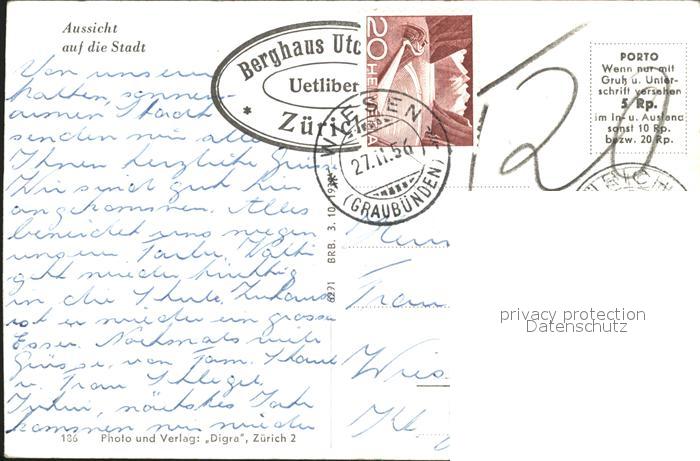 Aussicht
auf die Stadt
Berghaus Uto
Uetliber
* Zürich
20 HELVETIA
WIESEN
27.II.56
(GRAUBÜNDEN)
120
PORTO
Wenn nur mit
Gruß u. Unter-
schrift versehen
5 Rp.
im In- u. Ausland
sonst 10 Rp.
bezw. 20 Rp.
Von unserer
kalten, sonnen-
armen Stadt
senden wir alle
Ihnen herzliche Grüsse
Wir sind gut hier
angekommen. Alles
beneidet uns wegen
unserer Farbe. Walti
geht wieder
in die Schule. Zuhause
ist er wieder ein grosser
Esser. Nochmals viele
Grüsse, von Fam.
u. Frau Schlegel.
nächstes Jahr
kommen wir wieder
6271 BRB. 3. 10. 1938
Frau
Wies
186 Photo und Verlag: „Digra", Zürich 2
privacy protection
Datenschutz